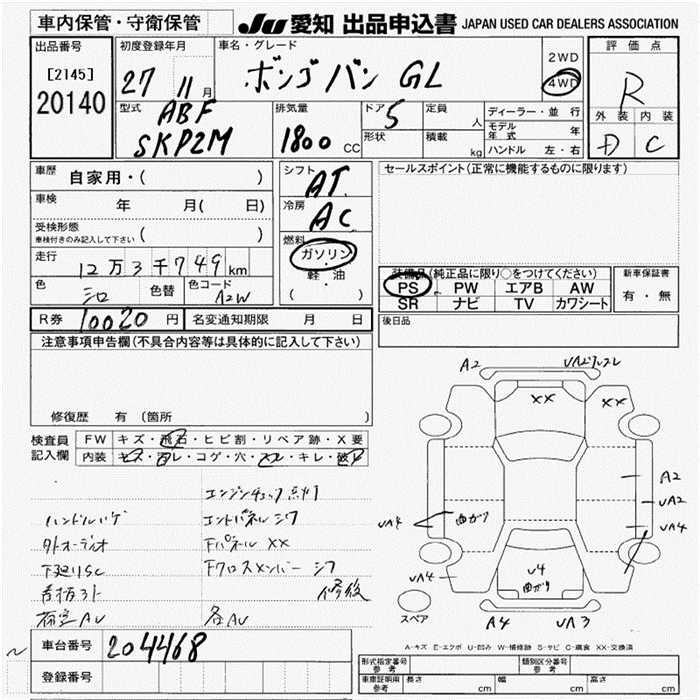 車内保管・守衛保管
JU 愛知 出品申込書 JAPAN USED CAR DEALERS ASSOCIATION
出品番号
[2145]
20140
初度登録年月
27 11 月
車名・グレード
ボンゴバン GL
2WD
4WD
評価点
R
外装 内装
D C
型式
ABF
SKP2M
排気量
1800 CC
ドア
5
形状
定員
人
積載
kg
ディーラー・並行
モデル年式 年
ハンドル 左・右
車歴 自家用・( )
車検 年 月( 日)
受検形態
車検付きのみ記入して下さい ( )
走行 12万3千749km
色 シロ 色替 色コード A2W
シフト
AT
冷房
AC
燃料
ガソリン
軽・油
( )
セールスポイント(正常に機能するものに限ります)
装備品(純正品に限り○をつけてください)
PS PW エアB AW
SR ナビ TV カワシート
新車保証書
有・無
R券 10020 円 名変通知期限 月 日
後日品
注意事項申告欄(不具合内容等は具体的に記入して下さい)
修復歴 有 (箇所 )
検査員記入欄
FW キズ・飛石・ヒビ割・リペア跡・X要
内装 キズ・汚レ・コゲ・穴・スレ・キレ・破レ
エンジンチェック点灯
ハンドルハゲ エンドパネルシワ
外オーディオ FパネルXX
下廻りSC Fクロスメンバーシワ
修後
各AU
車台番号 204468
登録番号
A2
XX
XX
A2
UA2
UA4
UA4
曲がり
UA4
U4
曲がり
A4
UA3
スペア
A-キズ E-エクボ U-凹み W-補修跡 S-サビ C-腐食 XX-交換済
形式指定番号 参考
類別区分番号 参考
車庫証明用 参考 長さ cm 幅 cm 高さ cm